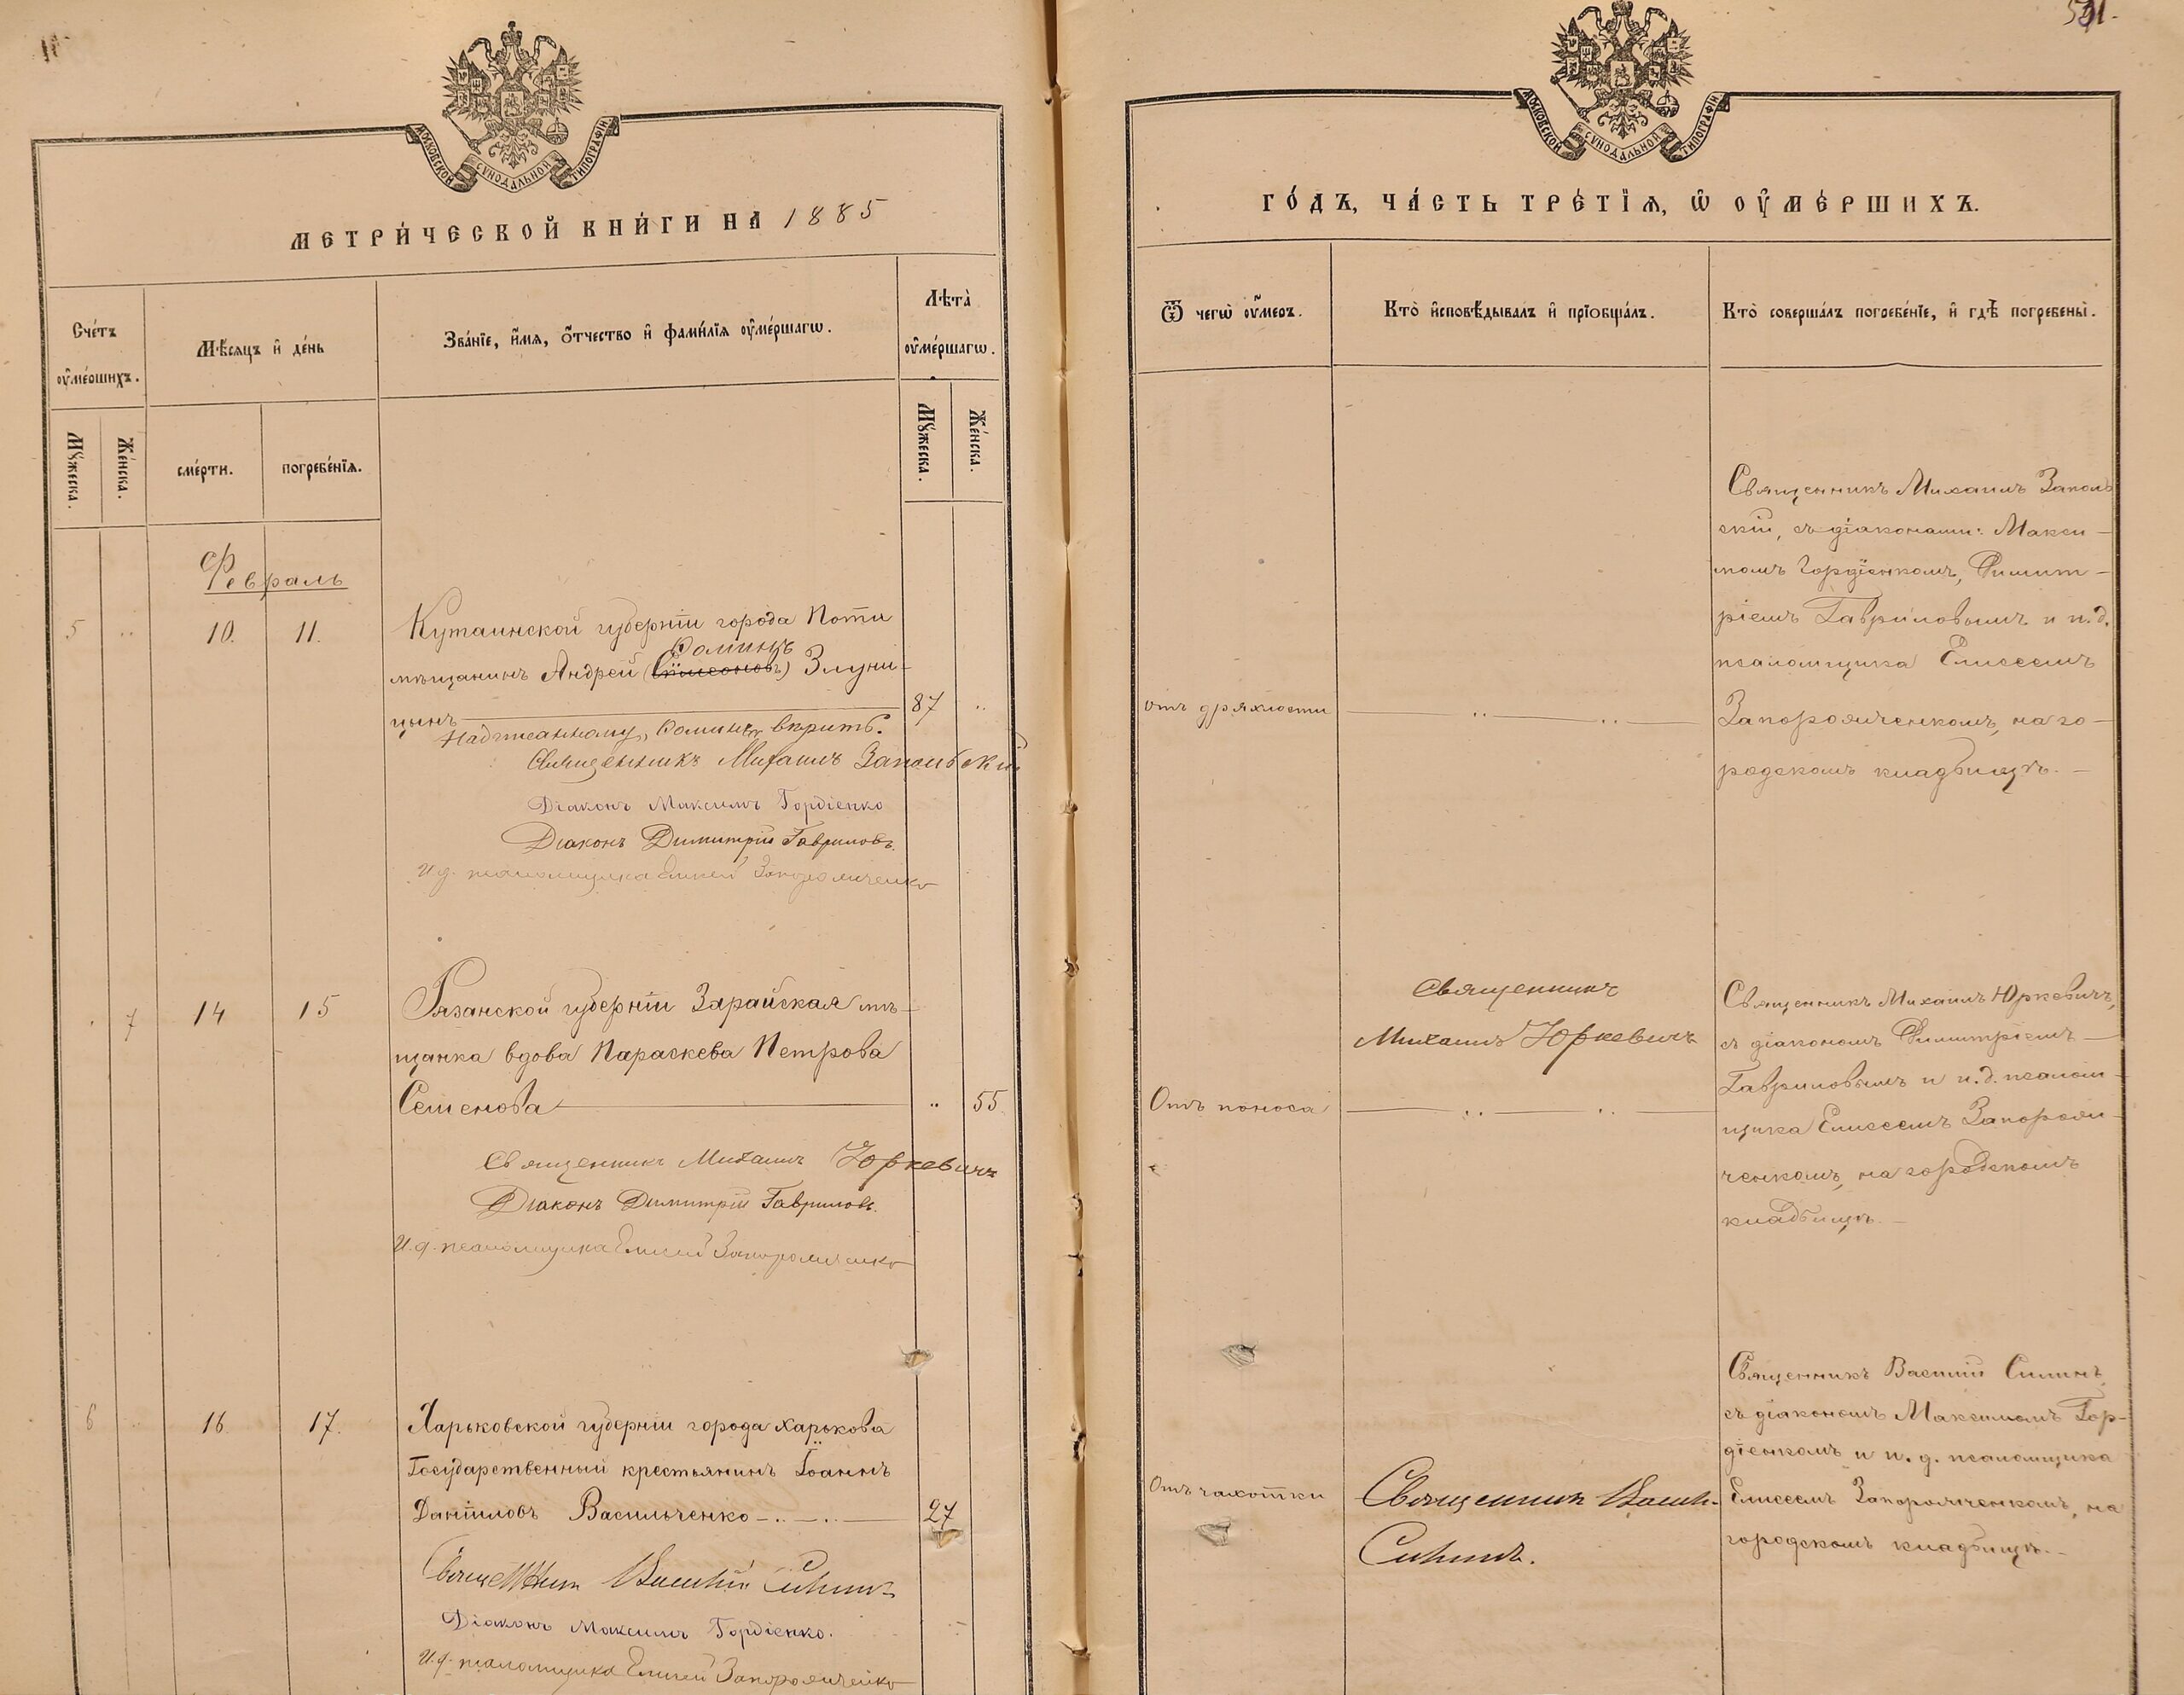 МОСКОВСКОЙ СУНОДАЛЬНОЙ ТИПОГРАФІИ
МЕТРИ́ЧЕСКОЙ КНИ́ГИ НА 1885
Сче́тъ оу҆ме́ршихъ.
Мѣ́сяцъ и҆ де́нь
Зва́нїе, и҆́мя, ѻ҆́тчество и҆ фами́лїя оу҆ме́ршагѡ.
Лѣта̀ оу҆ме́ршагѡ.
Му́жеска.
Же́нска.
сме́рти.
погребе́нїя.
Му́жеска.
Же́нска.
Февраль
5 .. 10. 11.
Кутаинской губерніи города Поти
Фоминъ
мѣщанинъ Андрей (Симеоновъ) Злуни-
цынъ 87 ..
Надписанному, Фоминъ вѣрить.
Священникъ Михаилъ Запольскій
Діаконъ Максимъ Гордіенко
Діаконъ Димитрій Гавриловъ.
И.д. псаломщика Елисей Запорожченко
. 7 14 15
Рязанской губерніи Зарайская мѣ-
щанка вдова Параскева Петрова
Семенова .. 55.
Священникъ Михаилъ Юркевичъ
Діаконъ Димитрій Гавриловъ.
И.д. псаломщика Елисей Запорожченко
6 .. 16 17.
Харьковской губерніи города Харькова
Государственный крестьянинъ Іоаннъ
Даніиловъ Васильченко 27
Священникъ Василій Силинъ
Діаконъ Максимъ Гордіенко.
И.д. псаломщика Елисей Запорожченко
531.
МОСКОВСКОЙ СУНОДАЛЬНОЙ ТИПОГРАФІИ
ГО́ДЪ, ЧА́СТЬ ТРЕ́ТЇЯ, Ѡ҆ ОУ҆МЕ́РШИХЪ.
Ѿ чегѡ̀ оу҆́меръ.
Кто̀ и҆сповѣ́дывалъ и҆ прїобща́лъ.
Кто̀ соверша́лъ погребе́нїе, и҆ гдѣ̀ погребены̀.
отъ дряхлости
Священникъ Михаилъ Заполь-
скій, съ діаконами: Макси-
момъ Гордіенкомъ, Димит-
ріемъ Гавриловымъ и и.д.
псаломщика Елисеемъ
Запорожченкомъ, на го-
родскомъ кладбищѣ.
Отъ поноса
Священникъ
Михаилъ Юркевичъ
Священникъ Михаилъ Юркевичъ,
съ діакономъ Димитріемъ
Гавриловымъ и и.д. псалом-
щика Елисеемъ Запорож-
ченкомъ, на городскомъ
кладбищѣ.
Отъ чахотки
Священникъ Васил.
Силинъ.
Священникъ Василій Силинъ,
съ діакономъ Максимомъ Гор-
діенкомъ и и. д. псаломщика
Елисеемъ Запорожченкомъ, на
городскомъ кладбищѣ.